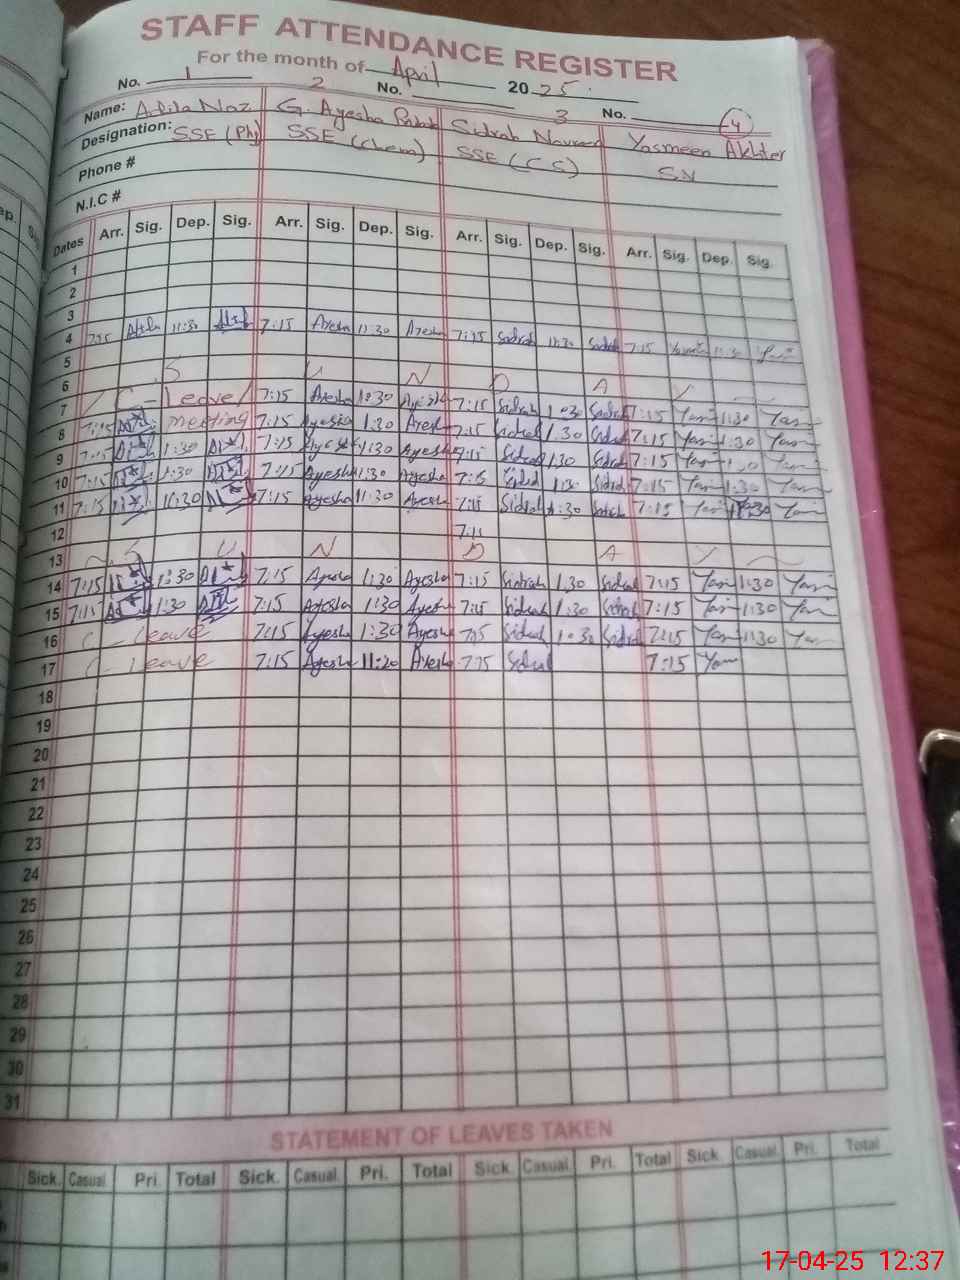 STAFF ATTENDANCE REGISTER
For the month of April 2025
No. 1 2 No. 3 No. 4
Name: Adila Naz G. Ayesha Sidrah Yasmeen Akhter
Designation: SSE (Phy) SSE (Chem) SSE (CS)
Phone #
N.I.C #
Dates Arr. Sig. Dep. Sig. Arr. Sig. Dep. Sig. Arr. Sig. Dep. Sig. Arr. Sig. Dep. Sig.
1
2
3
4 7:15 11:30 7:15 Ayesha 11:30 Ayesha 7:15 Sidrah 11:30 Sidrah 7:15 11:30
5
6 S U N D A Y
7 C - leave 7:15 Ayesha 1:30 Ayesha 7:15 Sidrah 1:30 Sidrah 7:15 Yas 1:30 Yas
8 7:15 meeting 7:15 Ayesha 1:30 Ayesha 7:15 Sidrah 1:30 Sidrah 7:15 Yas 1:30 Yas
9 7:15 1:30 7:15 Ayesha 1:30 Ayesha 7:15 Sidrah 1:30 Sidrah 7:15 Yas Yas
10 7:15 1:30 7:15 Ayesha 1:30 Ayesha 7:15 Sidrah 1:30 Sidrah 7:15 Yas 1:30 Yas
11 7:15 11:30 7:15 Ayesha 11:30 Ayesha 7:15 Sidrah 11:30 7:15 Yas 11:30 Yas
12
13 S U N D A Y
14 7:15 1:30 7:15 Ayesha 1:30 Ayesha 7:15 Sidrah 1:30 Sidrah 7:15 Yas 1:30 Yas
15 7:15 1:30 7:15 Ayesha 1:30 Ayesha 7:15 Sidrah 1:30 Sidrah 7:15 Yas 1:30 Yas
16 C - leave 7:15 Ayesha 1:30 Ayesha 7:15 Sidrah 1:30 Sidrah 7:15 Yas 1:30 Yas
17 C - leave 7:15 Ayesha 11:20 Ayesha 7:15 Sidrah 7:15 Yas
18
19
20
21
22
23
24
25
26
27
28
29
30
31
STATEMENT OF LEAVES TAKEN
Sick. Casual. Pri. Total Sick. Casual. Pri. Total Sick. Casual. Pri. Total Sick. Casual. Pri. Total
17-04-25 12:37